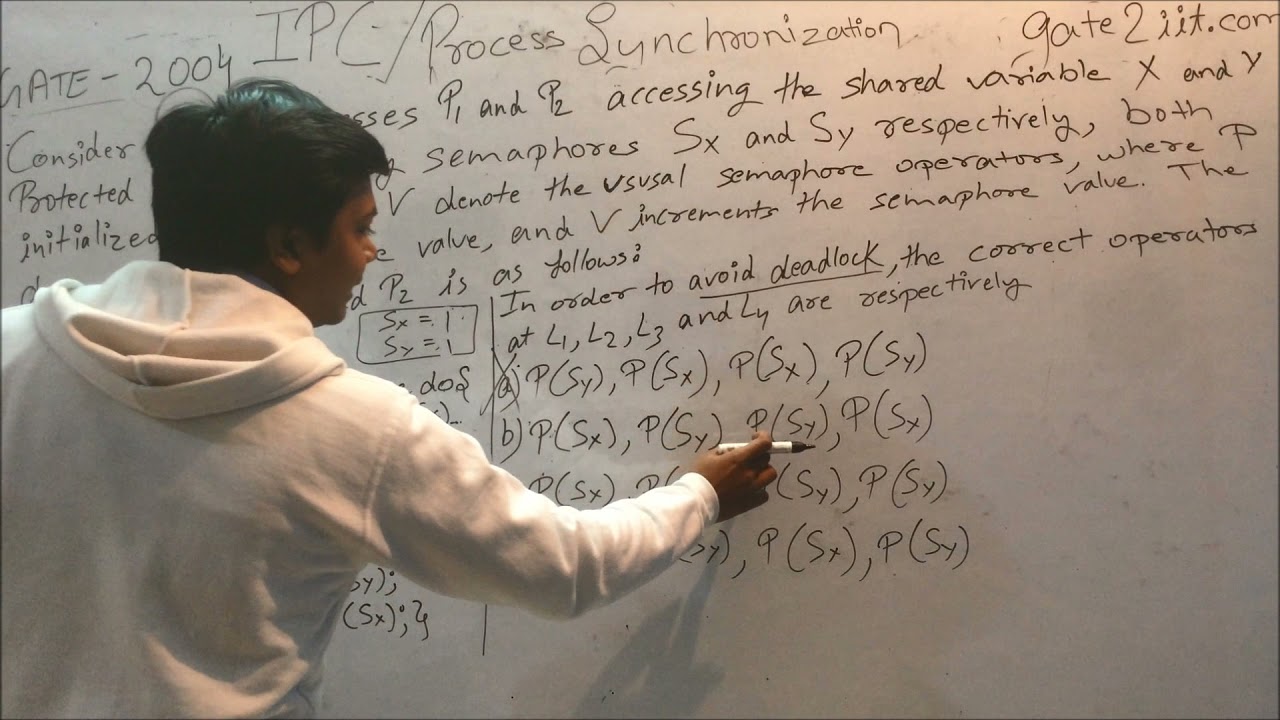 IPC/Process Synchronization
gate2iit.com
GATE-2004
Consider sses P1 and P2 accessing the shared variable X and Y
Protected semaphores Sx and Sy respectively, both
initialized V denote the ususal semaphore operators, where P
e value, and V increments the semaphore value. The
d P2 is as follows:
Sx = 1
Sy = 1
do{
Sy);
(Sx);}
In order to avoid deadlock, the correct operators
at L1, L2, L3 and Ly are respectively
a) P(Sy), P(Sx), P(Sx), P(Sy)
b) P(Sx), P(Sy), P(Sy), P(Sx)
P(Sx), (Sy), P(Sy)
Sy), P(Sx), P(Sy)